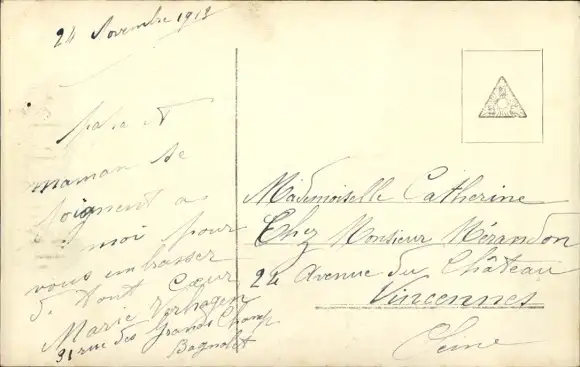 24 Novembre 1912
papa et
maman se
joignent a
moi pour
vous embrasser
de tout cœur
Marie Verhagen
31 rue des Grands Champ
Bagnolet
Mademoiselle Catherine
Chez Monsieur Mérandon
24 Avenue du Château
Vincennes
Seine